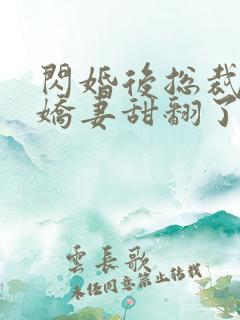 閃婚後总裁
嬌妻甜翻了
雲長歌
未经同意禁止转载